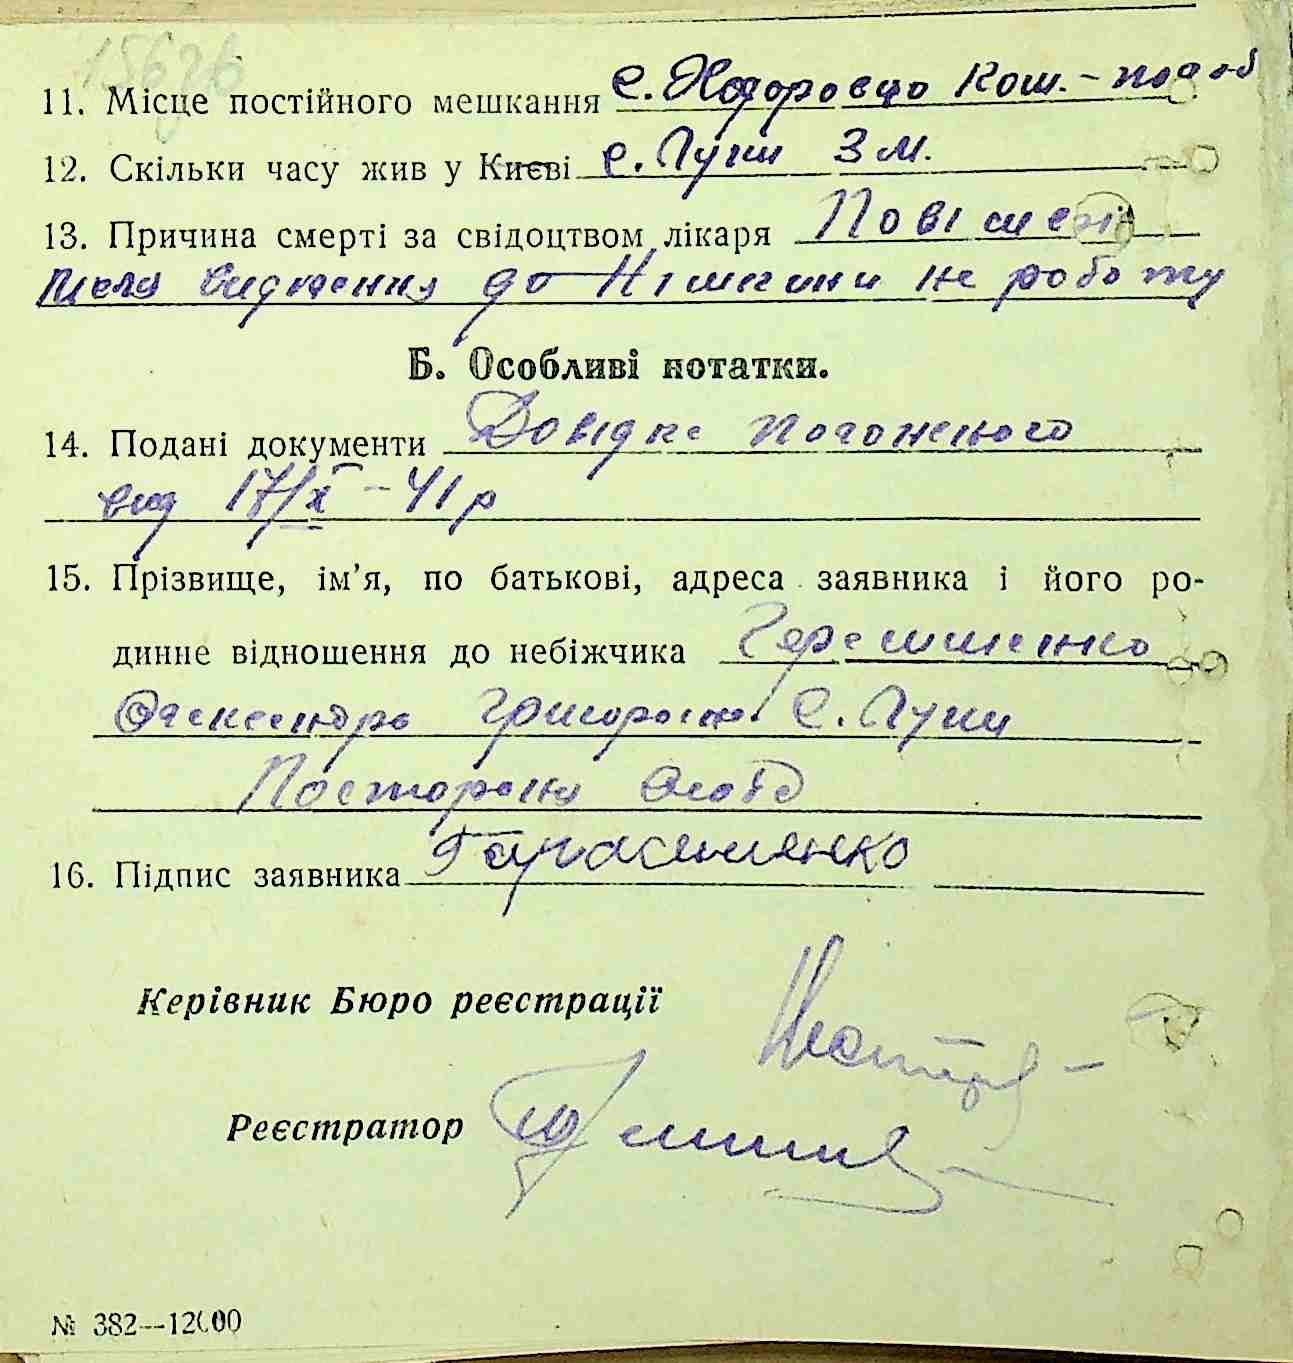 11. Місце постійного мешкання с. Ходоровцо Кош.-подоб
12. Скільки часу жив у Києві с. Луки 3 м.
13. Причина смерті за свідоцтвом лікаря Повішен
видження до Німеччини на роботу
Б. Особливі нотатки.
14. Подані документи Довідка
від 17/X – 41 р
15. Прізвище, ім’я, по батькові, адреса заявника і його ро-
динне відношення до небіжчика Герасименко
Олександра Григоров. с. Луки
Постороння особа
16. Підпис заявника Гарасименко
Керівник Бюро реєстрації
Реєстратор
№ 382—12000